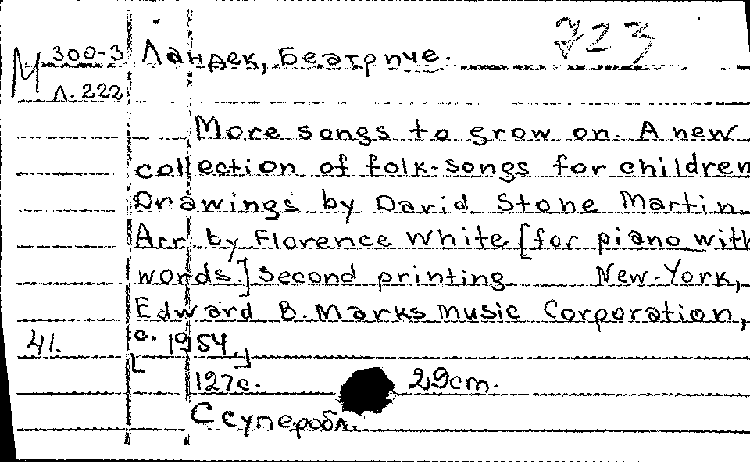 723
М 300-3 Ландек, Беатриче.
Л.222
More songs to grow on. A new
collection of folk-songs for children
Drawings by David Stone Martin.
Arr. by Florence White [for piano with
words.] Second printing New-York,
Edward B. Marks Music Corporation,
41. [c. 1954.]
127с. 29cm.
С суперобл.